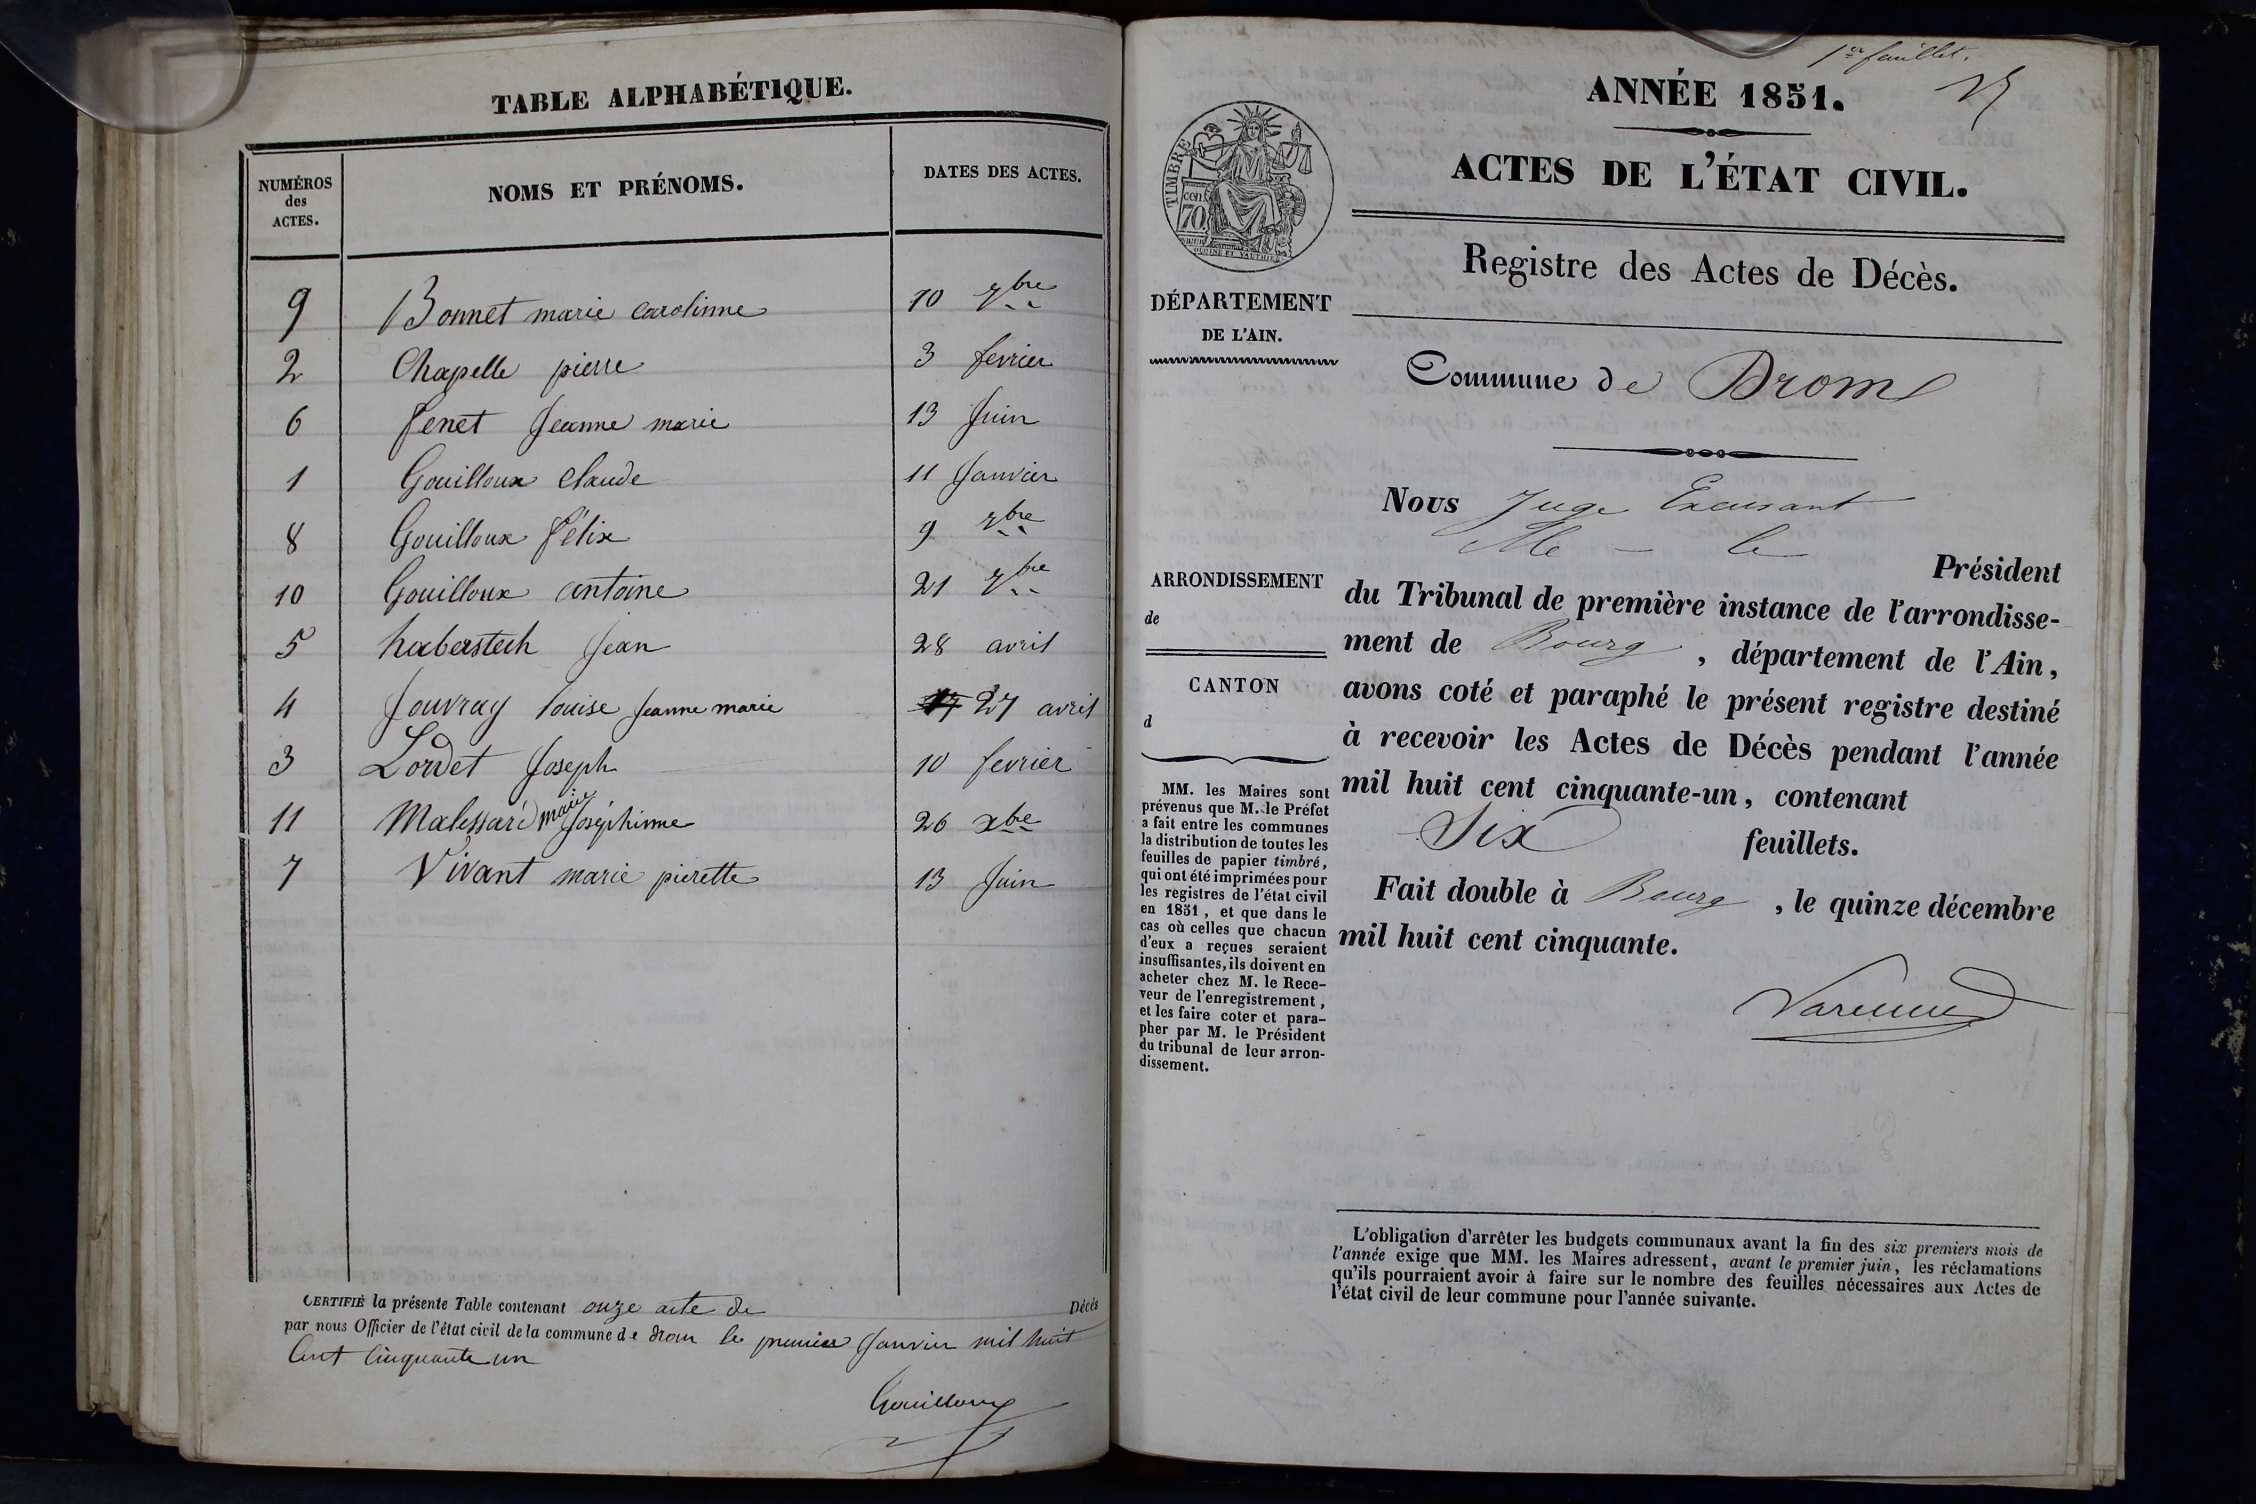 TABLE ALPHABÉTIQUE.
NUMÉROS des ACTES. NOMS ET PRÉNOMS. DATES DES ACTES.
9 Bonnet marie carolinne 10 7bre
2 Chapelle pierre 3 fevrier
6 fenet Jeanne marie 13 Juin
1 Gouilloux Claude 11 Janvier
8 Gouilloux félix 9 7bre
10 Gouilloux antoine 21 7bre
5 haberstech Jean 28 avril
4 Jouvray louise Jeanne marie 27 avril
3 Lordet Joseph 10 fevrier
11 Malessard marie Joséphinne 26 xbre
7 Vivant marie pierette 13 Juin
CERTIFIÉ la présente Table contenant onze acte de Décès
par nous Officier de l'état civil de la commune de drom le premier Janvier mil huit
Cent Cinquante un
Gouilloux
1er feuillet.
ANNÉE 1851.
ACTES DE L'ÉTAT CIVIL.
Registre des Actes de Décès.
TIMBRE
70
DÉPARTEMENT
DE L'AIN.
Commune de Drom
Nous Juge Excusant
Me - le
Président
ARRONDISSEMENT
de
CANTON
d
du Tribunal de première instance de l'arrondisse-
ment de Bourg, département de l'Ain,
avons coté et paraphé le présent registre destiné
à recevoir les Actes de Décès pendant l'année
mil huit cent cinquante-un, contenant
Six feuillets.
Fait double à Bourg, le quinze décembre
mil huit cent cinquante.
MM. les Maires sont
prévenus que M. le Préfet
a fait entre les communes
la distribution de toutes les
feuilles de papier timbré,
qui ont été imprimées pour
les registres de l'état civil
en 1851, et que dans le
cas où celles que chacun
d'eux a reçues seraient
insuffisantes, ils doivent en
acheter chez M. le Rece-
veur de l'enregistrement,
et les faire coter et para-
pher par M. le Président
du tribunal de leur arron-
dissement.
L'obligation d'arrêter les budgets communaux avant la fin des six premiers mois de
l'année exige que MM. les Maires adressent, avant le premier juin, les réclamations
qu'ils pourraient avoir à faire sur le nombre des feuilles nécessaires aux Actes de
l'état civil de leur commune pour l'année suivante.